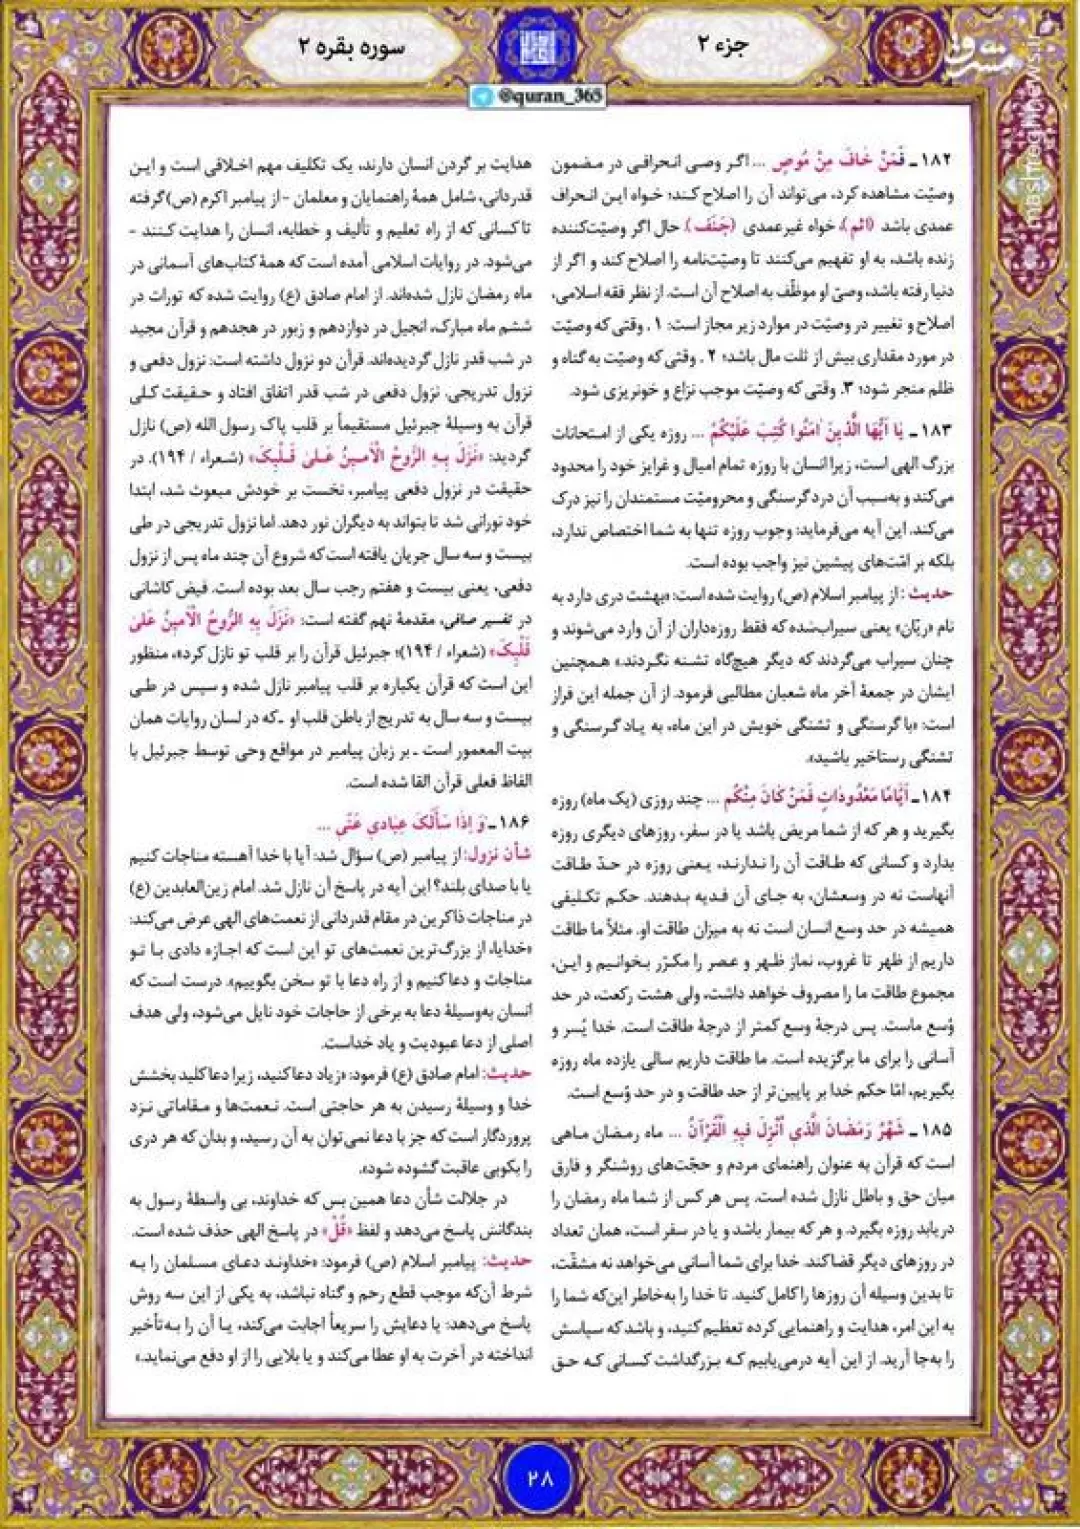 جزء ۲
سوره بقره ۲
مشرق
mashreghnews.ir
@quran_365
۱۸۲ـ فَمَنْ خَافَ مِنْ مُوصٍ ... اگر وصی انحرافی در مضمون
وصیّت مشاهده کرد، می‌تواند آن را اصلاح کند؛ خواه این انحراف
عمدی باشد (اثم)، خواه غیرعمدی (جَنَف). حال اگر وصیّت‌کننده
زنده باشد، به او تفهیم می‌کنند تا وصیّت‌نامه را اصلاح کند و اگر از
دنیا رفته باشد، وصیّ او موظّف به اصلاح آن است. از نظر فقه اسلامی،
اصلاح و تغییر در وصیّت در موارد زیر مجاز است: ۱. وقتی که وصیّت
در مورد مقداری بیش از ثلث مال باشد؛ ۲. وقتی که وصیّت به گناه و
ظلم منجر شود؛ ۳. وقتی که وصیّت موجب نزاع و خونریزی شود.
۱۸۳ـ یَا أَیُّهَا الَّذِینَ اٰمَنُوا کُتِبَ عَلَیْکُمُ ... روزه یکی از امتحانات
بزرگ الهی است، زیرا انسان با روزه تمام امیال و غرایز خود را محدود
می‌کند و به‌سبب آن درد گرسنگی و محرومیّت مستمندان را نیز درک
می‌کند. این آیه می‌فرماید: وجوب روزه تنها به شما اختصاص ندارد،
بلکه بر امّت‌های پیشین نیز واجب بوده است.
حدیث: از پیامبر اسلام (ص) روایت شده است: «بهشت دری دارد به
نام «ریّان» یعنی سیراب‌شده که فقط روزه‌داران از آن وارد می‌شوند و
چنان سیراب می‌گردند که دیگر هیچ‌گاه تشنه نگردند.» همچنین
ایشان در جمعهٔ آخر ماه شعبان مطالبی فرمود. از آن جمله این فراز
است: «با گرسنگی و تشنگی خویش در این ماه، به یاد گرسنگی و
تشنگی رستاخیر باشید».
۱۸۴ـ أَیَّامًا مَعْدُودَاتٍ فَمَنْ کَانَ مِنْکُم ... چند روزی (یک ماه) روزه
بگیرید و هر که از شما مریض باشد یا در سفر، روزهای دیگری روزه
بدارد و کسانی که طاقت آن را ندارند، یعنی روزه در حدّ طاقت
آنهاست نه در وسعشان، به جای آن فدیه بدهند. حکم تکلیفی
همیشه در حد وسع انسان است نه به میزان طاقت او. مثلاً ما طاقت
داریم از ظهر تا غروب، نماز ظهر و عصر را مکرّر بخوانیم و این،
مجموع طاقت ما را مصروف خواهد داشت، ولی هشت رکعت، در حد
وُسع ماست. پس درجهٔ وسع کمتر از درجهٔ طاقت است. خدا یُسر و
آسانی را برای ما برگزیده است. ما طاقت داریم سالی یازده ماه روزه
بگیریم، امّا حکم خدا بر پایین‌تر از حد طاقت و در حد وُسع است.
۱۸۵ـ شَهْرُ رَمَضَانَ الَّذِي أُنْزِلَ فِيهِ الْقُرْآنُ ... ماه رمضان ماهی
است که قرآن به عنوان راهنمای مردم و حجّت‌های روشنگر و فارق
میان حق و باطل نازل شده است. پس هر کس از شما ماه رمضان را
دریابد روزه بگیرد. و هر که بیمار باشد و یا در سفر است، همان تعداد
در روزهای دیگر قضا کند. خدا برای شما آسانی می‌خواهد نه مشقّت،
تا بدین وسیله آن روزها را کامل کنید. تا خدا را به‌خاطر این‌که شما را
به این امر، هدایت و راهنمایی کرده تعظیم کنید، و باشد که سپاسش
را به‌جا آرید. از این آیه درمی‌یابیم که بزرگداشت کسانی که حق
هدایت بر گردن انسان دارند، یک تکلیف مهم اخلاقی است و این
قدردانی، شامل همهٔ راهنمایان و معلمان -از پیامبر اکرم (ص) گرفته
تا کسانی که از راه تعلیم و تألیف و خطابه، انسان را هدایت کنند -
می‌شود. در روایات اسلامی آمده است که همهٔ کتاب‌های آسمانی در
ماه رمضان نازل شده‌اند. از امام صادق (ع) روایت شده که تورات در
ششم ماه مبارک، انجیل در دوازدهم و زبور در هجدهم و قرآن مجید
در شب قدر نازل گردیده‌اند. قرآن دو نزول داشته است: نزول دفعی و
نزول تدریجی. نزول دفعی در شب قدر اتفاق افتاد و حقیقت کلی
قرآن به وسیلهٔ جبرئیل مستقیماً بر قلب پاک رسول الله (ص) نازل
گردید: «نَزَلَ بِهِ الرُّوحُ الْأَمِینُ عَلیٰ قَلْبِکَ» (شعراء / ۱۹۴). در
حقیقت در نزول دفعی پیامبر، نخست بر خودش مبعوث شد، ابتدا
خود نورانی شد تا بتواند به دیگران نور دهد. اما نزول تدریجی در طی
بیست و سه سال جریان یافته است که شروع آن چند ماه پس از نزول
دفعی، یعنی بیست و هفتم رجب سال بعد بوده است. فیض کاشانی
در تفسیر صافی، مقدمهٔ نهم گفته است: «نَزَلَ بِهِ الرُّوحُ الْأَمِینُ عَلیٰ
قَلْبِکَ» (شعراء / ۱۹۴)؛ جبرئیل قرآن را بر قلب تو نازل کرد»، منظور
این است که قرآن یکباره بر قلب پیامبر نازل شده و سپس در طی
بیست و سه سال به تدریج از باطن قلب او ـ که در لسان روایات همان
بیت المعمور است ـ بر زبان پیامبر در مواقع وحی توسط جبرئیل با
الفاظ فعلی قرآن القا شده است.
۱۸۶ـ وَ إِذَا سَأَلَکَ عِبَادِي عَنِّی ...
شأن نزول: از پیامبر (ص) سؤال شد: آیا با خدا آهسته مناجات کنیم
یا با صدای بلند؟ این آیه در پاسخ آن نازل شد. امام زین‌العابدین (ع)
در مناجات ذاکرین در مقام قدردانی از نعمت‌های الهی عرض می‌کند:
«خدایا، از بزرگ‌ترین نعمت‌های تو این است که اجازه دادی با تو
مناجات و دعا کنیم و از راه دعا با تو سخن بگوییم». درست است که
انسان به‌وسیلهٔ دعا به برخی از حاجات خود نایل می‌شود، ولی هدف
اصلی از دعا عبودیت و یاد خداست.
حدیث: امام صادق (ع) فرمود: «زیاد دعا کنید، زیرا دعا کلید بخشش
خدا و وسیلهٔ رسیدن به هر حاجتی است. نعمت‌ها و مقاماتی نزد
پروردگار است که جز با دعا نمی‌توان به آن رسید، و بدان که هر دری
را بکوبی عاقبت گشوده شود».
در جلالت شأن دعا همین بس که خداوند، بی واسطهٔ رسول به
بندگانش پاسخ می‌دهد و لفظ «قُلْ» در پاسخ الهی حذف شده است.
حدیث: پیامبر اسلام (ص) فرمود: «خداوند دعای مسلمان را به
شرط آن‌که موجب قطع رحم و گناه نباشد، به یکی از این سه روش
پاسخ می‌دهد: یا دعایش را سریعاً اجابت می‌کند، یا آن را به‌تأخیر
انداخته در آخرت به او عطا می‌کند و یا بلایی را از او دفع می‌نماید.»
۲۸